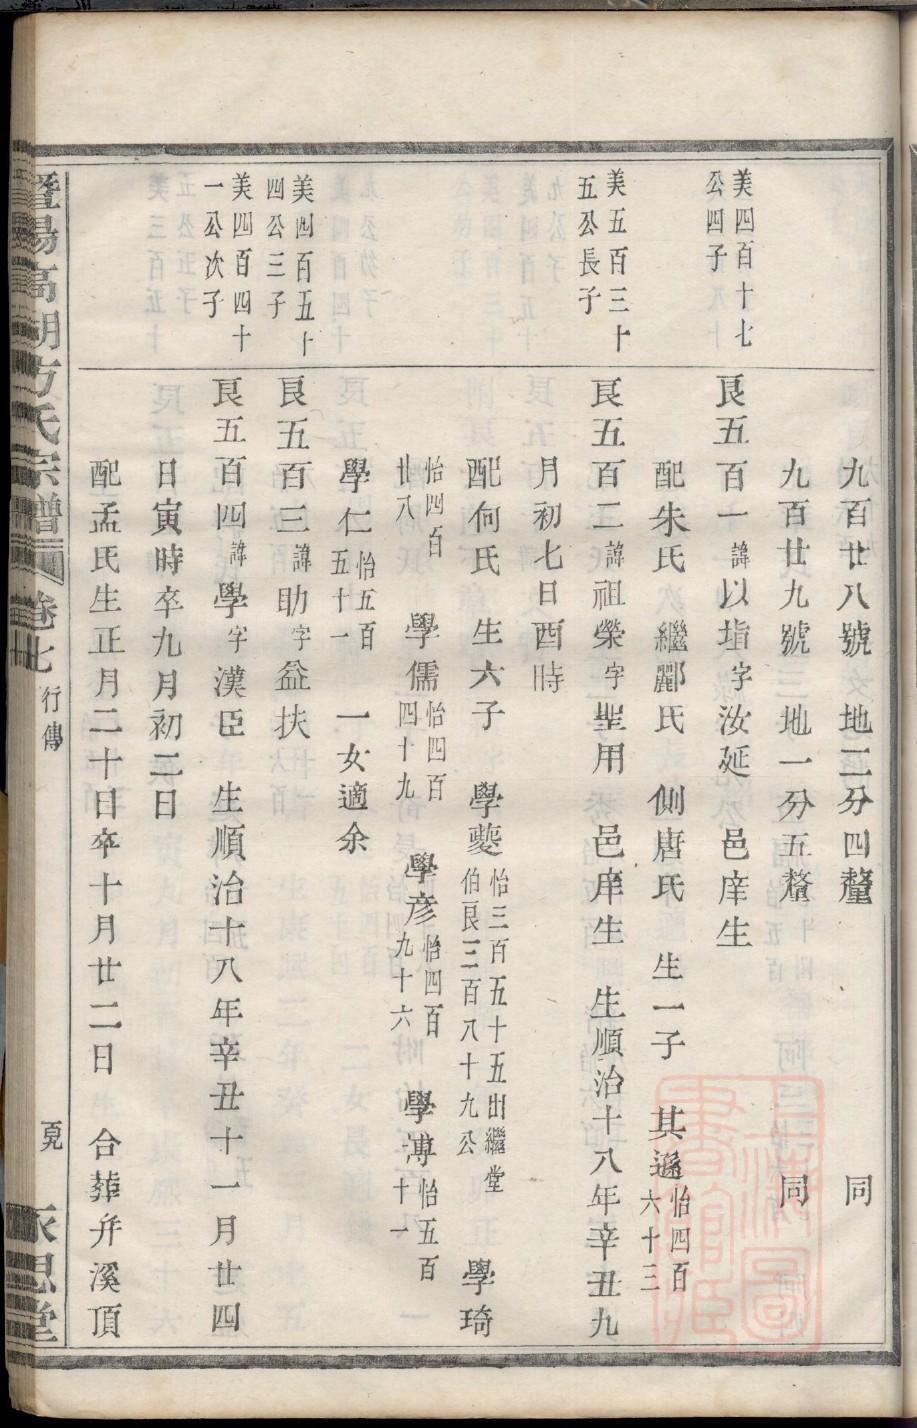 九百廿八號　地二分四釐　同
九百廿九號　地一分五釐　同
美四百十七
公四子
良五百一諱以塤字汝延　邑庠生
配朱氏　繼酈氏　側唐氏　生一子　其遜怡四百六十三
美五百三十
五公長子
良五百二諱祖榮字聖用　邑庠生　生順治十八年辛丑九
月初七日酉時
配何氏　生六子　學夔怡三百五十五出繼堂伯良三百八十九公　學琦
怡四百廿八　學儒怡四百四十九　學彥怡四百九十六　學溥怡五百十一
學仁怡五百五十一　一女適余
美四百五十
四公三子
良五百三諱助字益扶
美四百四十
一公次子
良五百四諱學字漢臣　生順治十八年辛丑十一月廿四
日寅時卒九月初三日
配孟氏生正月二十日卒十月廿二日　合葬弁溪頂
暨陽高湖方氏宗譜　卷七　行傳　永思堂